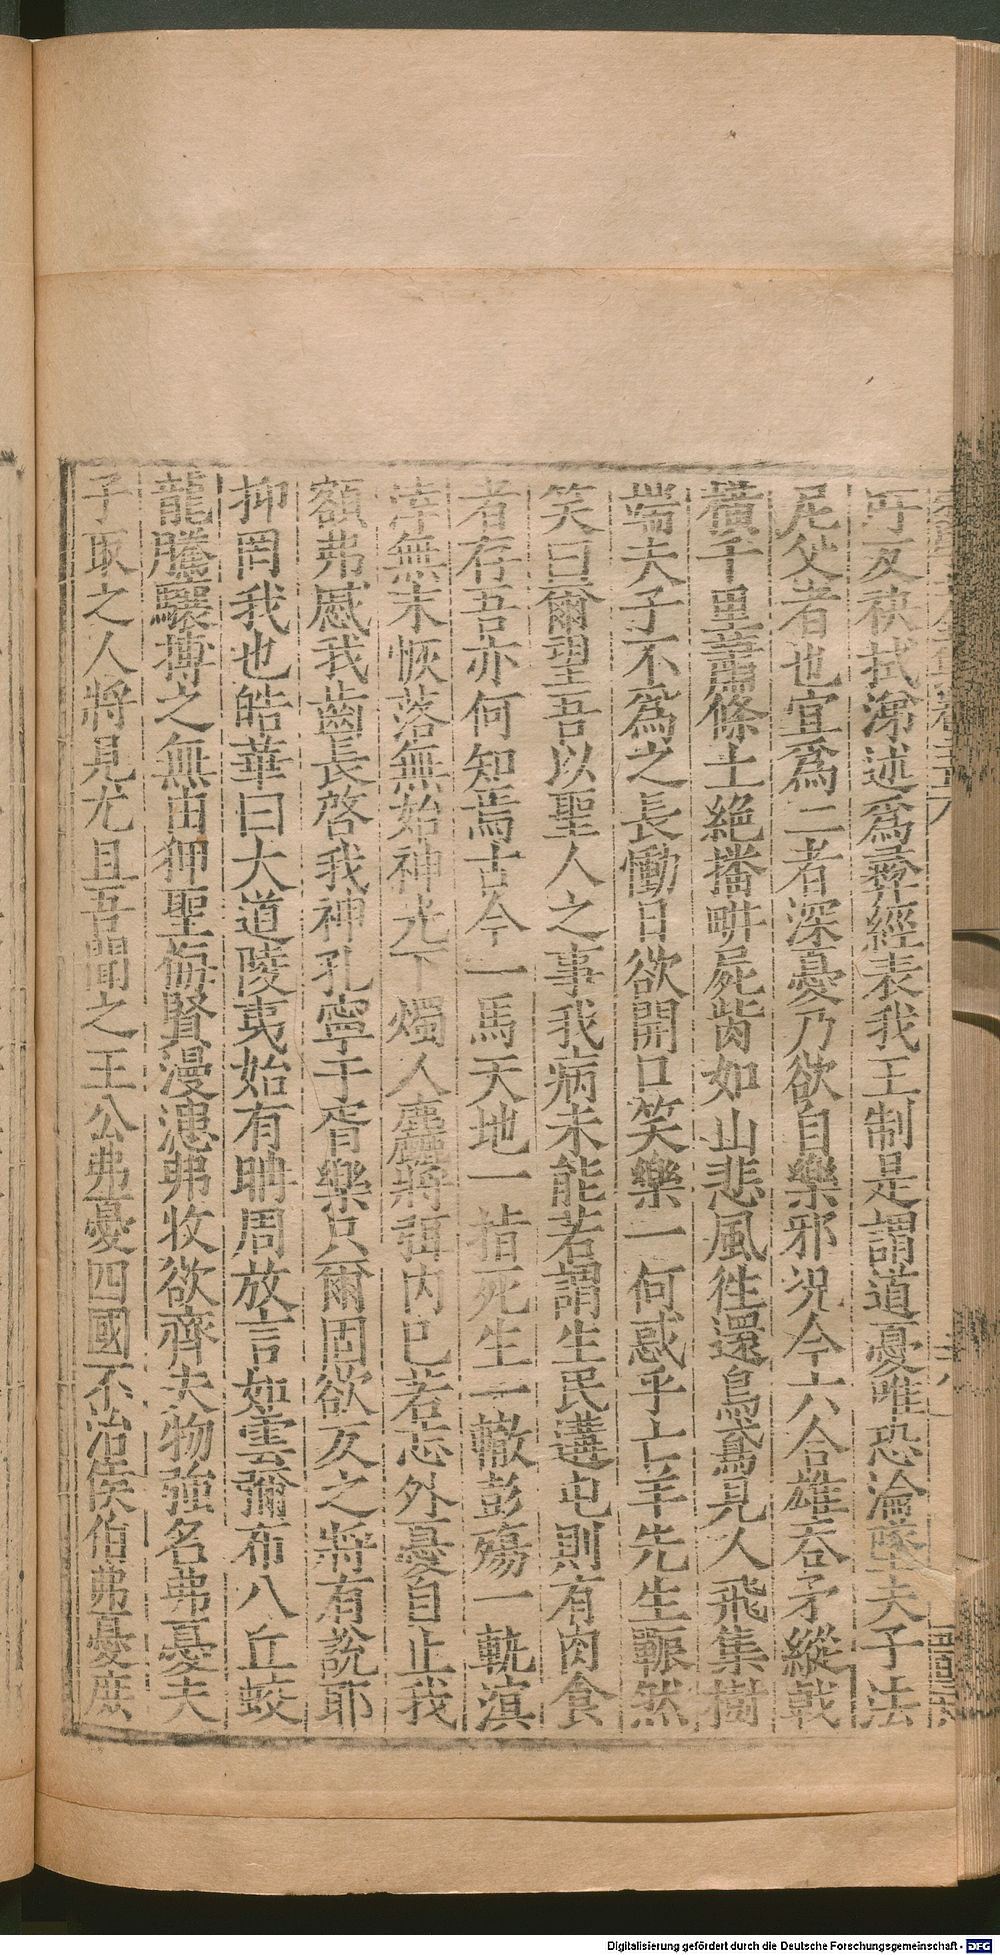 丏反袂拭涕述爲彛經表我王制是謂道憂唯恐淪墜夫子法
尼父者也宜爲二者深憂乃欲自樂邪況今六合雄吞矛縱戟
橫千里蕭條土絶播畊屍胔如山悲風徃還烏鳶見人飛集樹
端夫子不爲之長慟日欲開口笑樂一何惑乎亡羊先生冁然
笑曰爾望吾以聖人之事我病未能若謂生民遘屯則有肉食
者存吾亦何知焉古今一馬天地一指死生一轍彭殤一軌滇
涬無末恢落無始神光下燭人麤將弭内已若忘外憂自止我
額弗慼我齒長啓我神孔寧于胥樂只爾固欲友之將有說耶
抑罔我也皓華曰大道陵夷始有聃周放言如雲彌布八丘蛟
龍騰驤搏之無由狎聖侮賢漫漶弗收欲齊夫物強名弗憂夫
子取之人將見尤且吾聞之王公弗憂四國不治侯伯弗憂庶
Digitalisierung gefördert durch die Deutsche Forschungsgemeinschaft - DFG